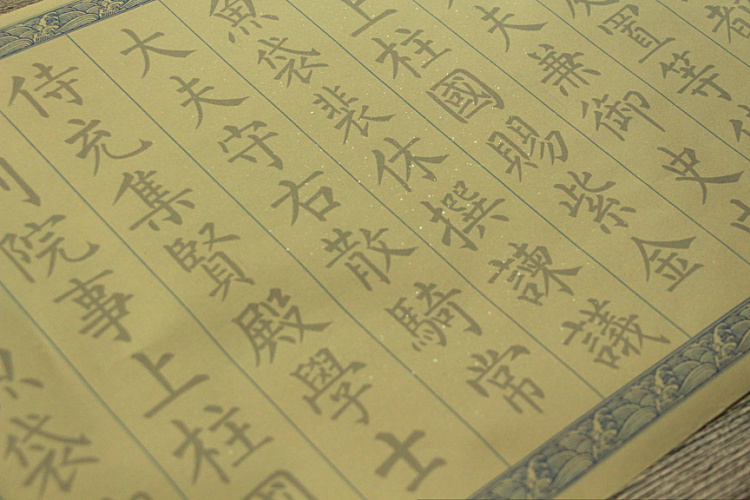 置等
夫兼御史
上柱國賜紫金
魚袋裴休撰諫議
大夫守右散騎常
侍充集賢殿學士
院事上柱
袋